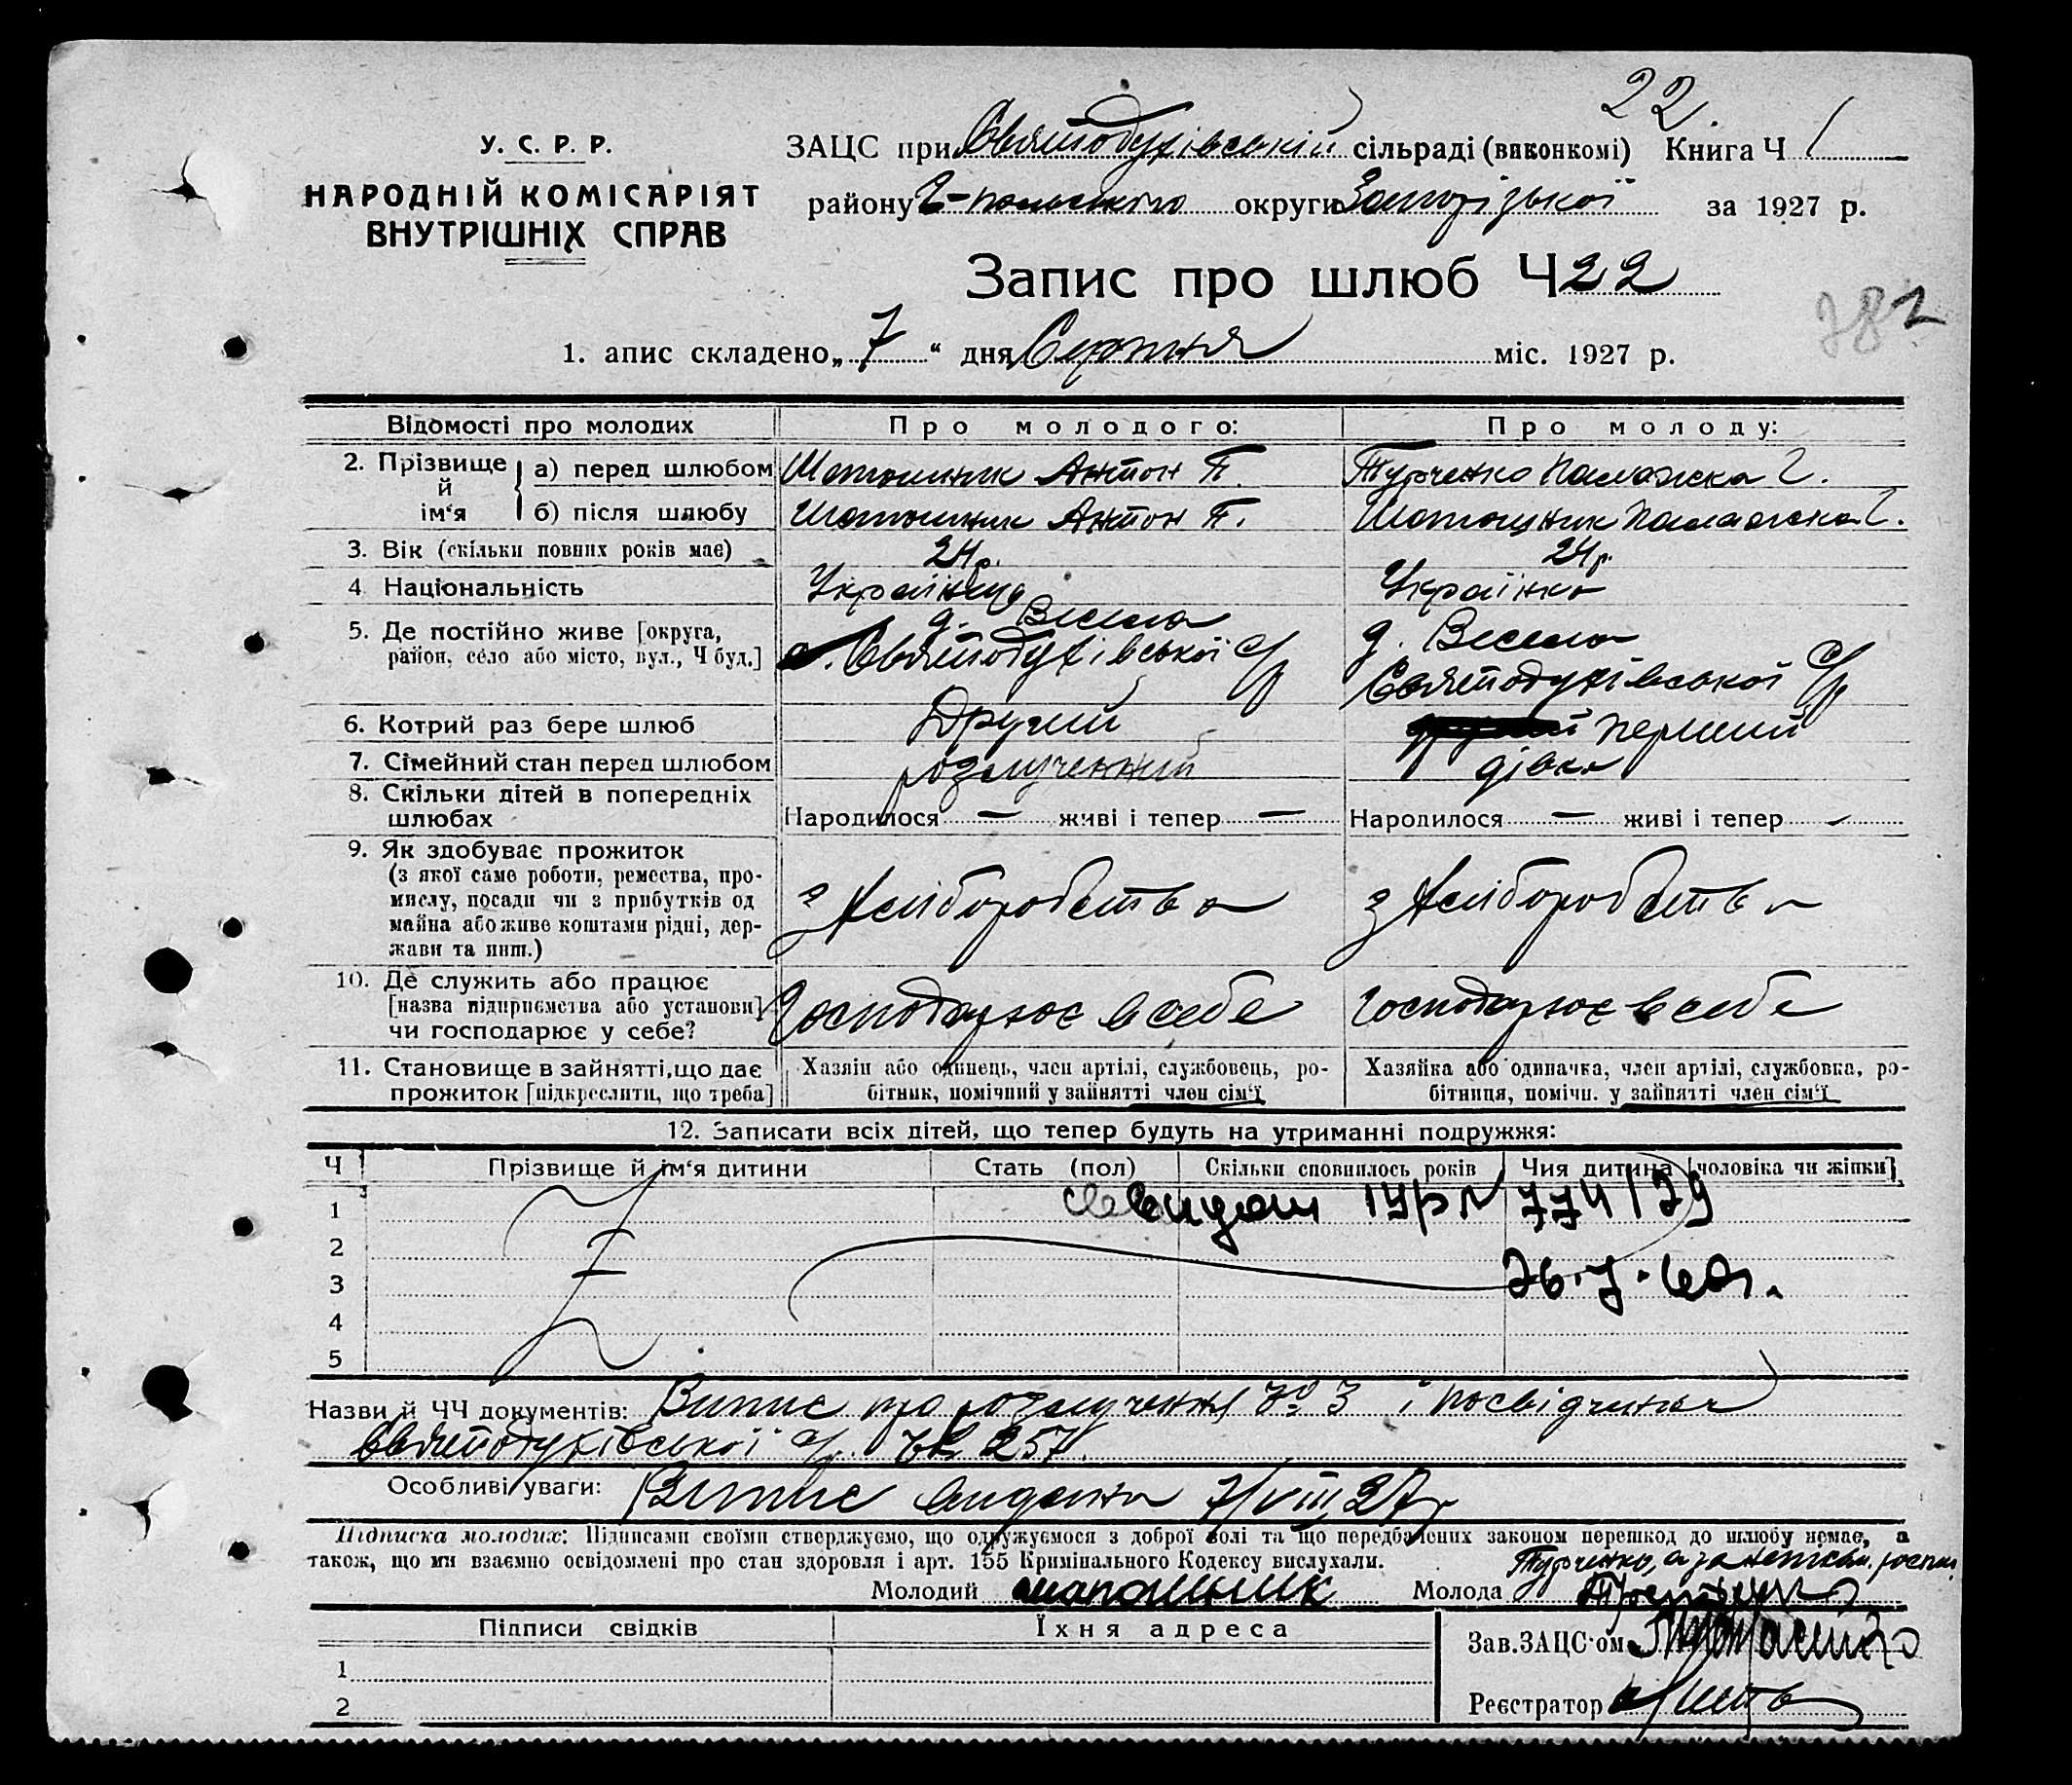 22.
У. С. Р. Р.
НАРОДНІЙ КОМІСАРІЯТ
ВНУТРІШНІХ СПРАВ
ЗАЦС при Святодухівській сільраді (виконкомі) Книга Ч 1
району Г-польського округи Запорізької за 1927 р.
Запис про шлюб Ч 22
1. апис складено „ 7 “ дня Серпня міс. 1927 р.
Відомості про молодих Про молодого: Про молоду:
2. Прізвище й ім‘я а) перед шлюбом Шапошник Антон П. Турченко Палажка Г.
б) після шлюбу Шапошник Антон П. Шапошник Палажка Г.
3. Вік (скільки повних років має) 24 р. 24 р.
4 Національність Українець Українка
5. Де постійно живе [округа, район, село або місто, вул., Ч буд.] д. Весела Святодухівської с/р д. Весела Святодухівської с/р
6. Котрий раз бере шлюб Другий перший
7. Сімейний стан перед шлюбом розлучений дівка
8. Скільки дітей в попередніх шлюбах Народилося — живі і тепер — Народилося — живі і тепер —
9. Як здобуває прожиток
(з якої саме роботи, ремества, про-
мислу, посади чи з прибутків од
майна або живе коштами рідні, дер-
жави та инш.) з хліборобства з хліборобства
10. Де служить або працює
[назва підприємства або установи]
чи господарює у себе? Господарює в себе Господарює в себе
11. Становище в зайнятті, що дає
прожиток [підкреслити, що треба]
Хазяїн або одинець, член артілі, службовець, ро-
бітник, помічний у зайнятті член сім‘ї
Хазяйка або одиначка, член артілі, службовка, ро-
бітниця, помічн. у зайнятті член сім‘ї
12. Записати всіх дітей, що тепер будуть на утриманні подружжя:
Ч Прізвище й ім‘я дитини Стать (пол) Скільки сповнилось років Чия дитина [чоловіка чи жінки]
1
2
3
4
5
Назви й ЧЧ документів: Випис про розлучення № 3 і посвідчення
Святодухівської с/р. № 257.
Особливі уваги: Випис видана 7/VIII 27 р
Підписка молодих: Підписами своїми стверджуємо, що одружуємося з доброї волі та що передбачених законом перешкод до шлюбу немає, а
також, що ми взаємно освідомлені про стан здоровля і арт. 155 Кримінального Кодексу вислухали.
Турченко, а за
Молодий Шапошник Молода
Підписи свідків Їхня адреса
Зав. ЗАЦС‘ом
1
2
Реєстратор